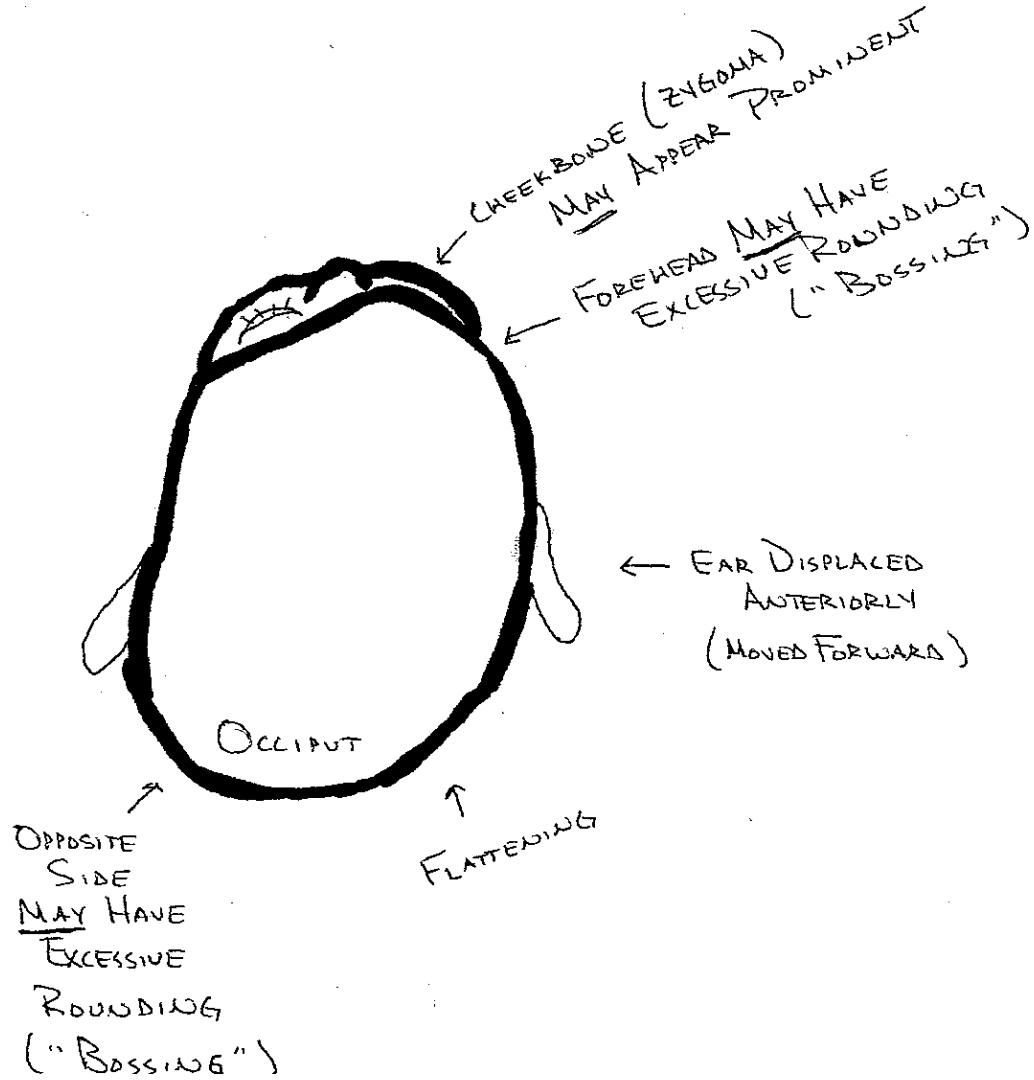 CHEEKBONE (ZYGOMA)
MAY APPEAR PROMINENT
FOREHEAD MAY HAVE
EXCESSIVE ROUNDING
("BOSSING")
← EAR DISPLACED
ANTERIORLY
(MOVED FORWARD)
OCCIPUT
FLATTENING
OPPOSITE
SIDE
MAY HAVE
EXCESSIVE
ROUNDING
("BOSSING")